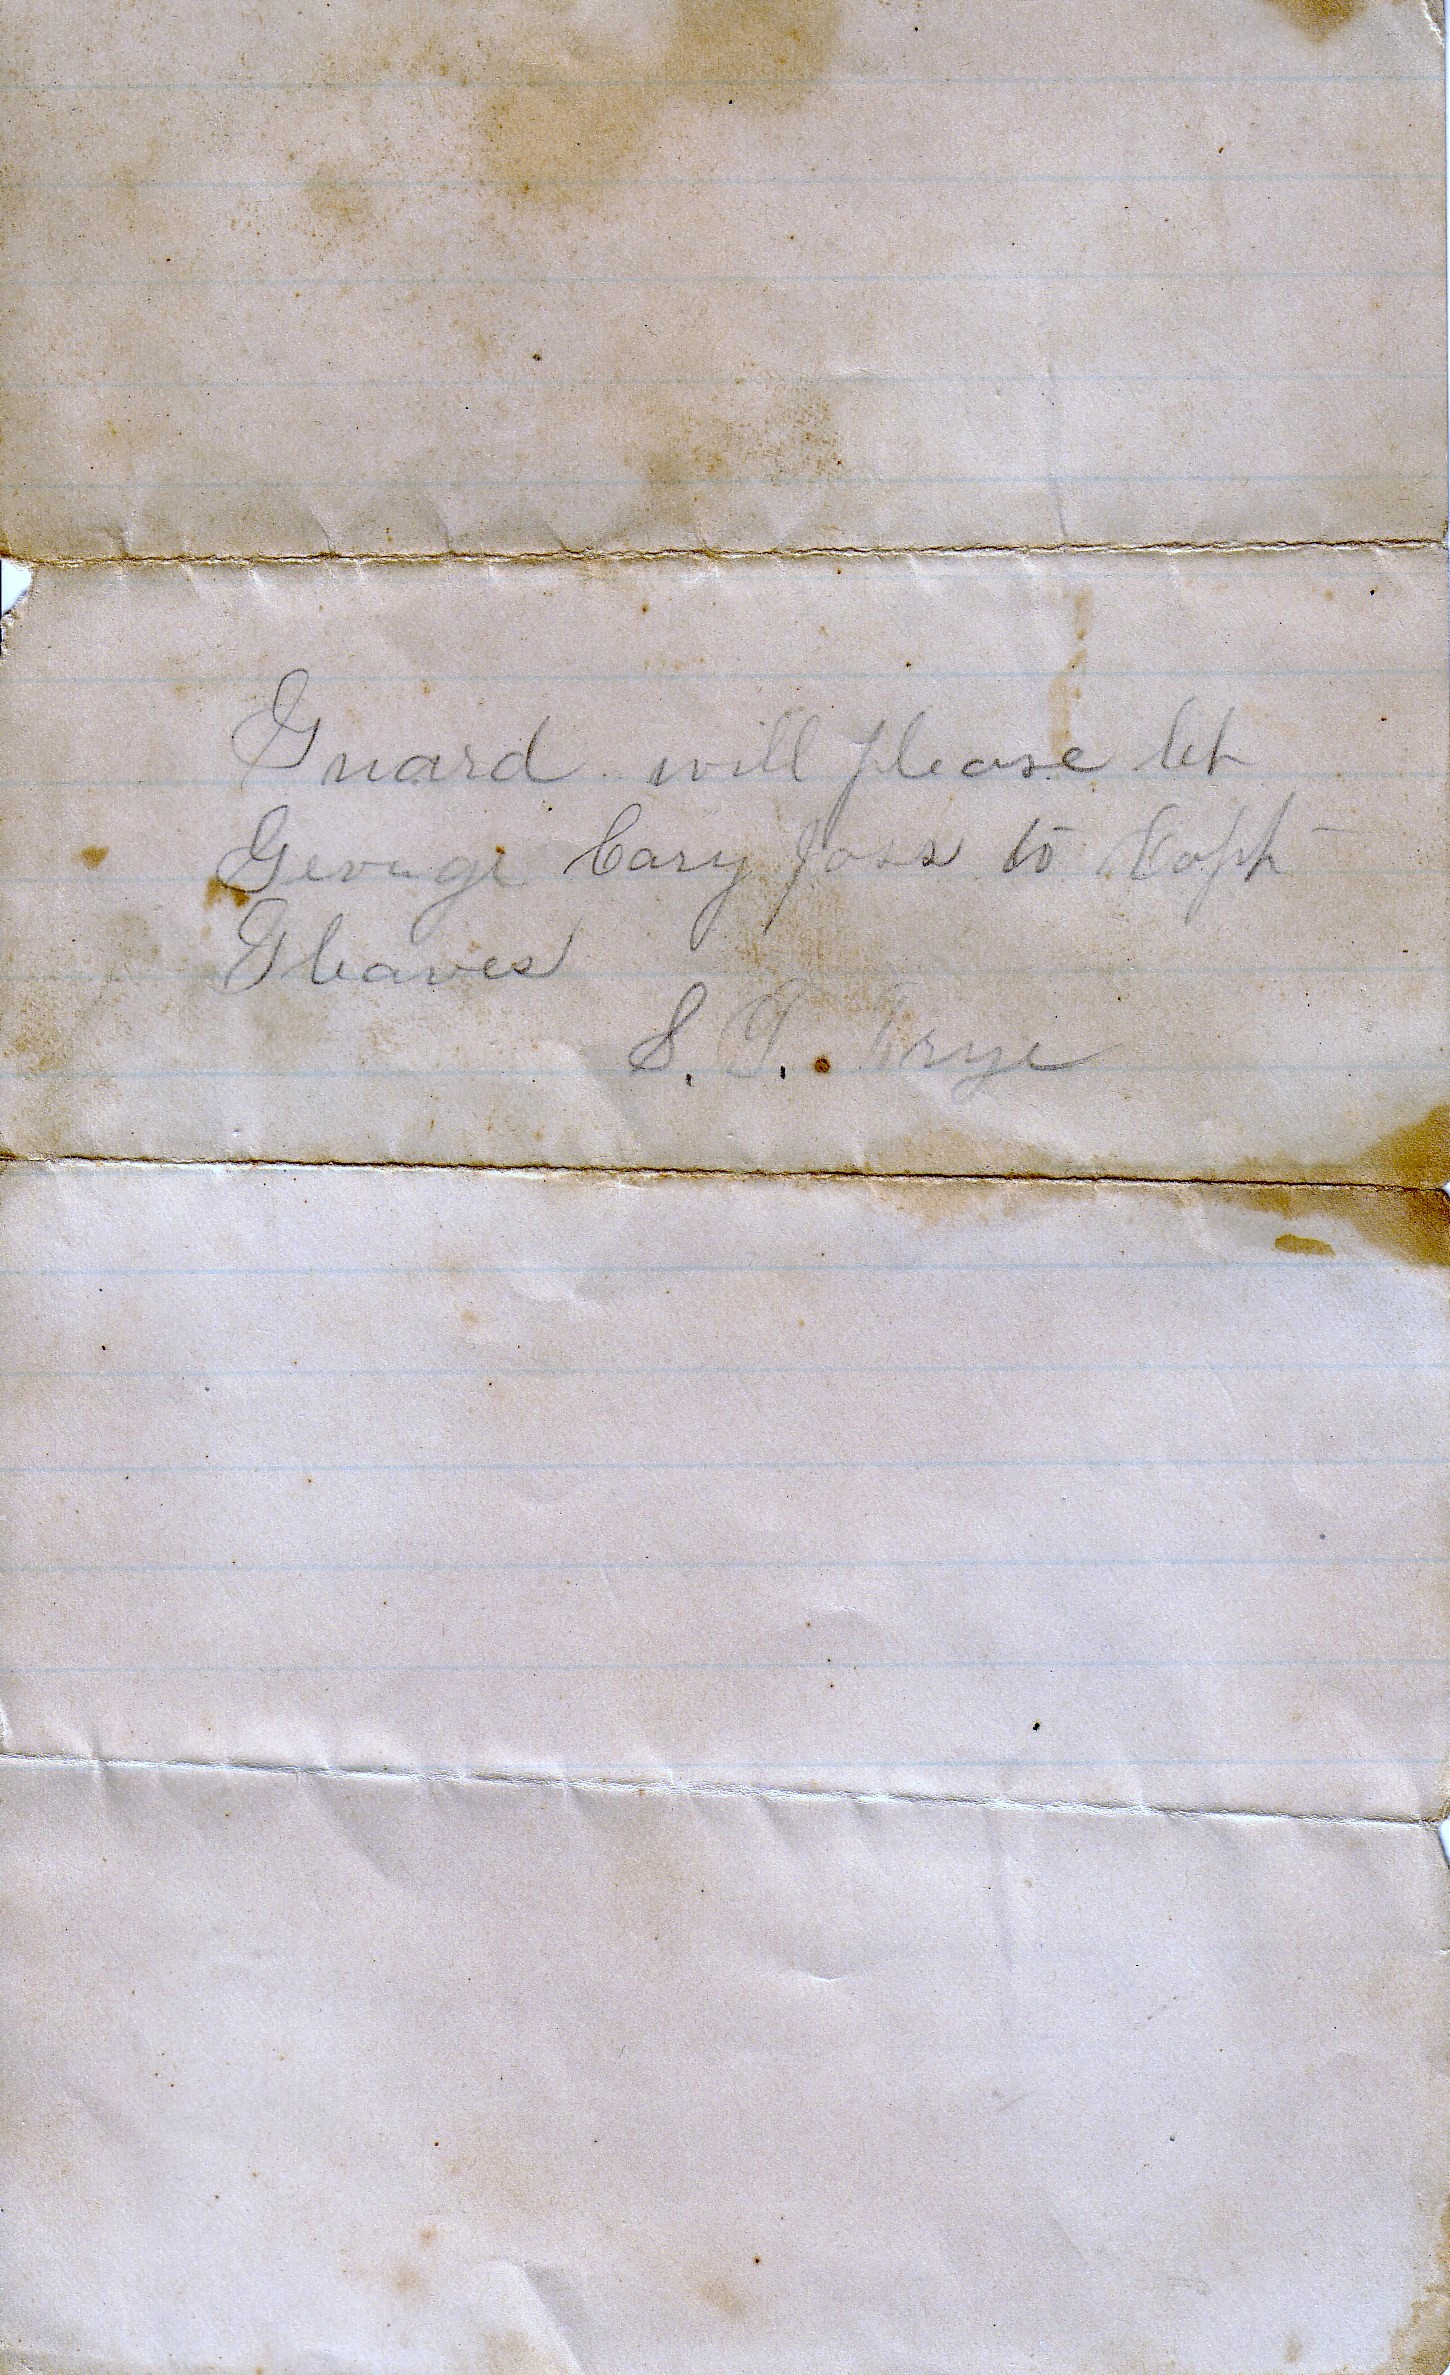 Guard will please let
George Cary pass to Capt
Gleaves
S. T. Frye